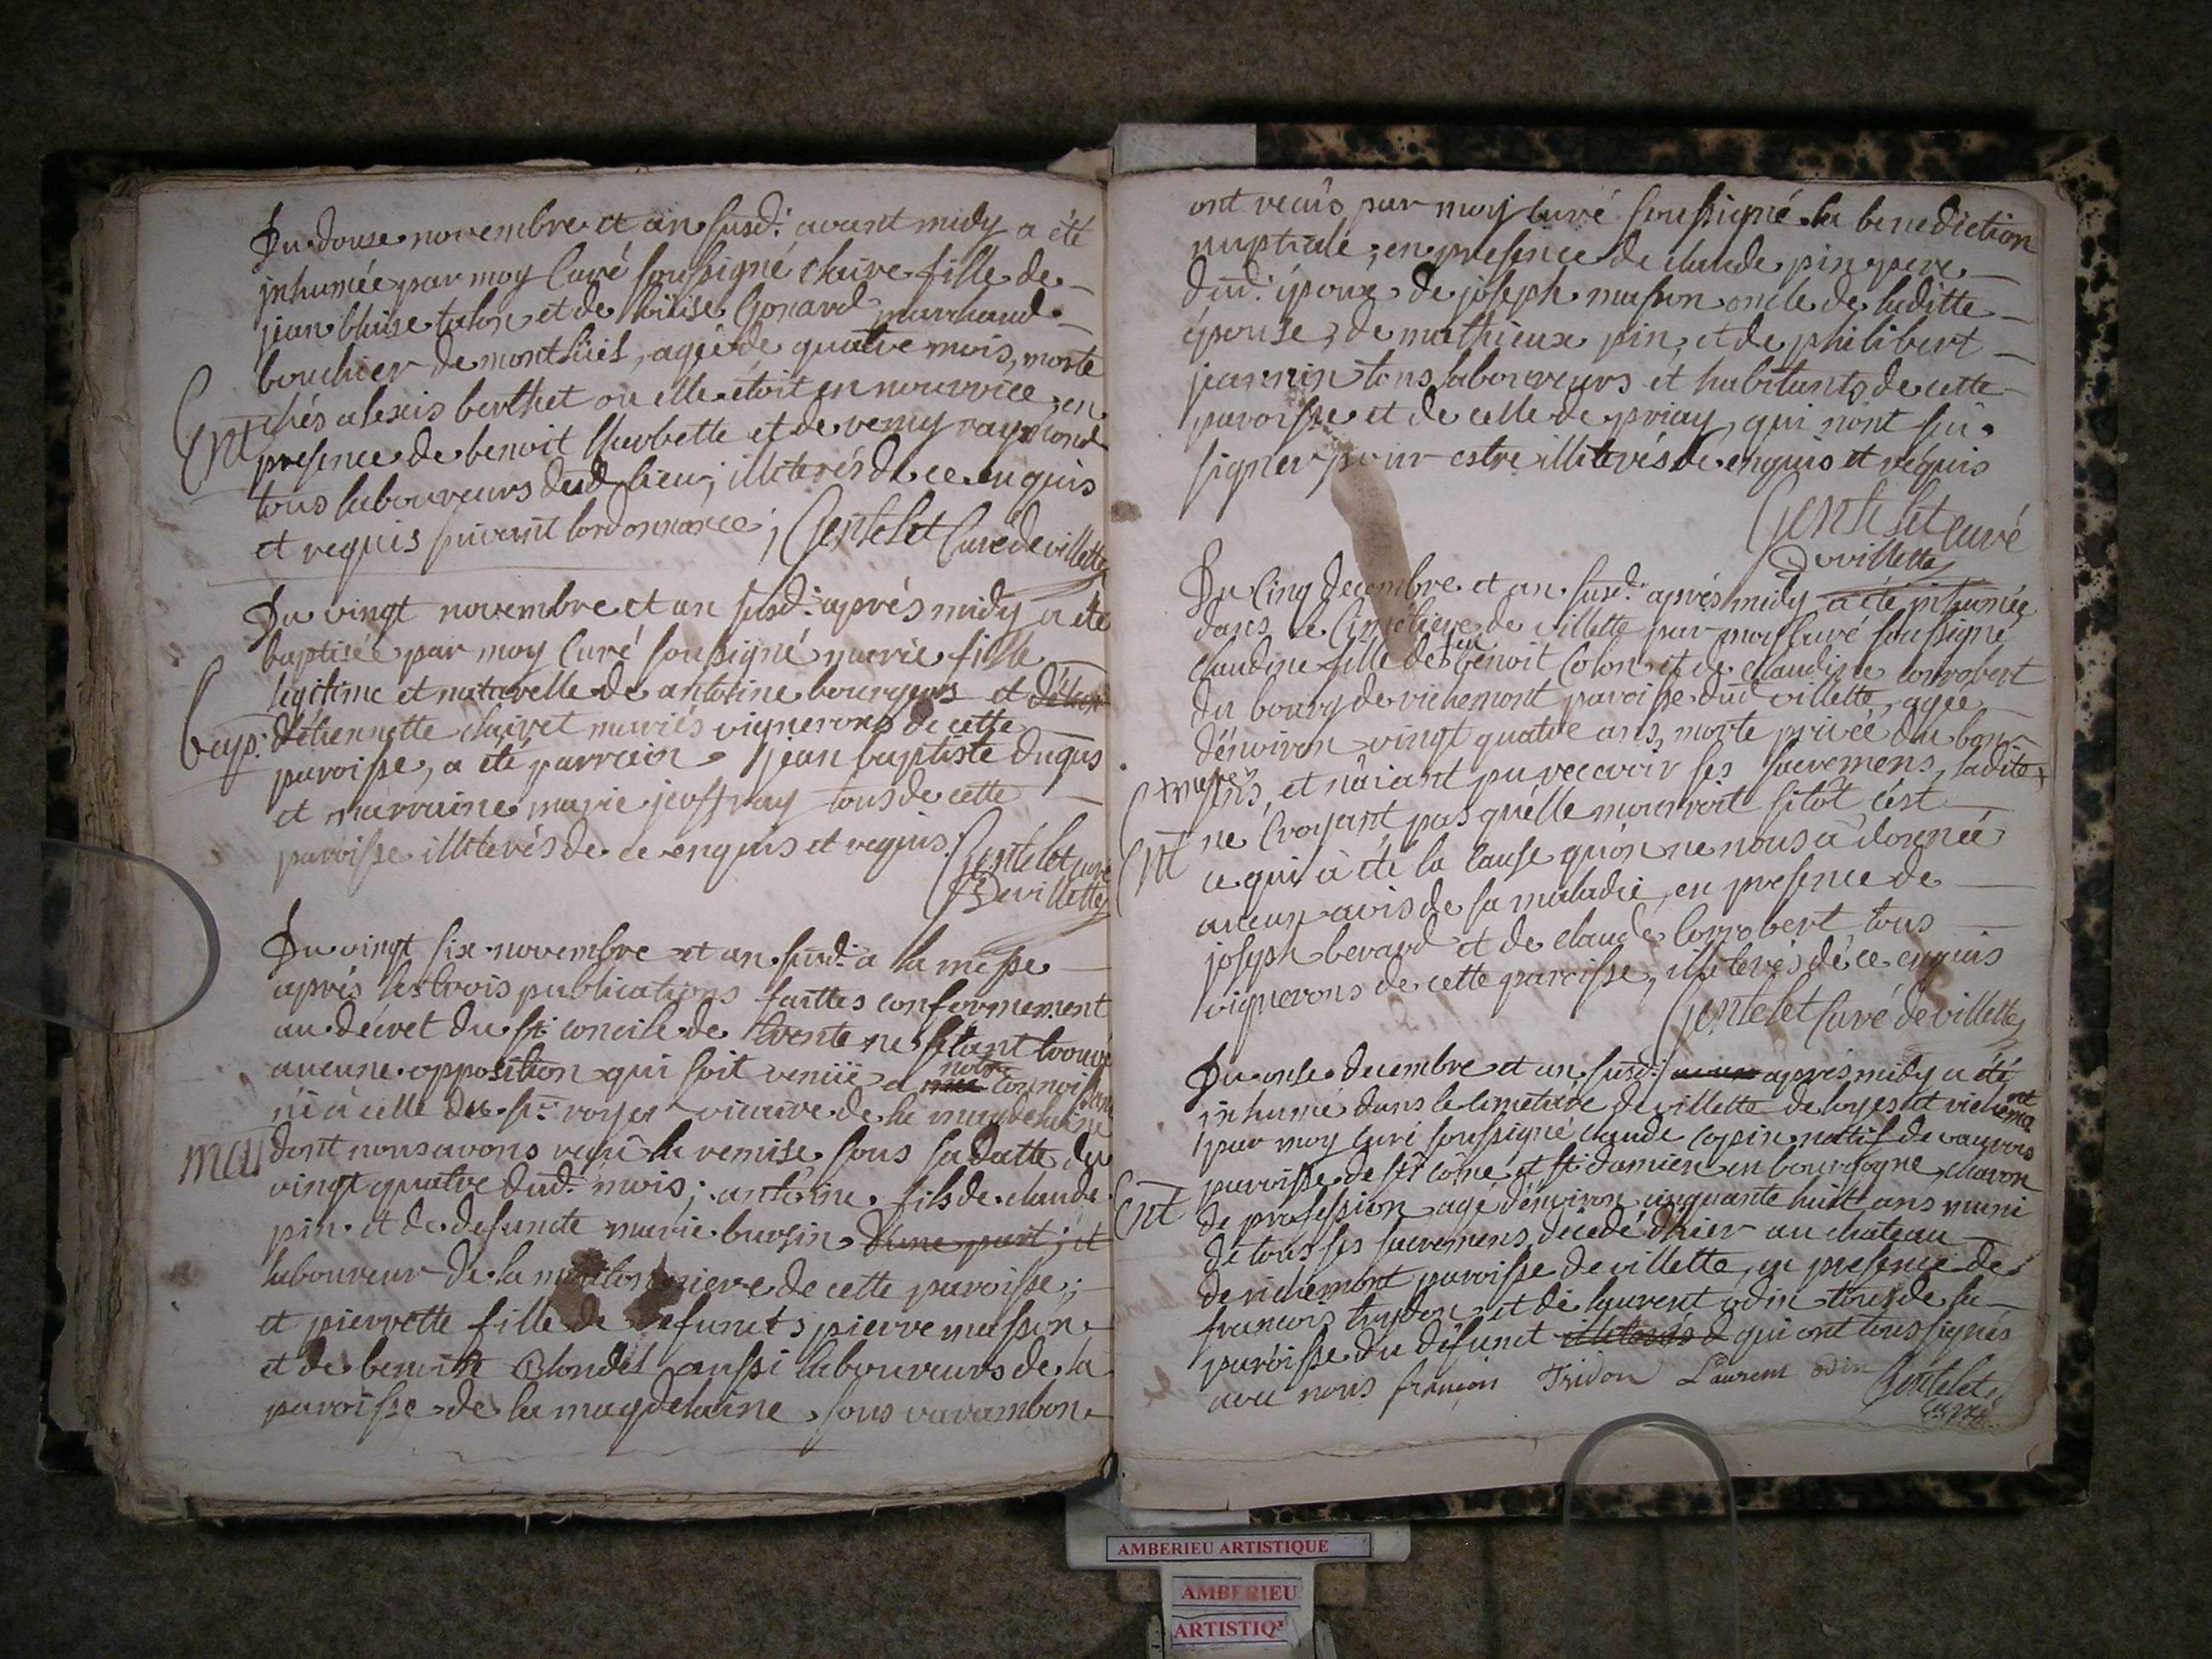 Du douse novembre et an susd: avant midy a été
inhumée par moy Curé soussigné claire fille de
jean blaise talon et de loüise Gonard marchand
bouchier de montlüel, agée de quatre mois, morte
chés alexis berthet ou elle étoit en nourrice, en
Ent
presence de benoit et de remy raymond
tous laboureurs dud lieu; illiterés de ce enquis
et requis suivant lordonnance; Gentelet Curé de villette
Du vingt novembre et an susd: après midy a été
baptisée par moy Curé soussigné marie fille
legitime et naturelle de antoine bourgeois et
bap: d'étiennette clairet mariés vignerons de cette
paroisse, a été parrain jean baptiste dugas
et marraine marie jeoffray tous de cette
paroisse illiterés de ce enquis et requis. Gentelet curé
De villette
Du vingt six novembre et an susd: a la messe
après les trois publications faittes conformement
au décret du st concile de trente ne s'étant trouvé
aucune opposition qui soit venüe a notre connoissance
ni à celle du sr: royer vicaire de la magdelaine
mar dont nous avons reçu la remise sous sa datte du
vingt quatre dud: mois; antoine fils de claude
pin et de defuncte marie bursin d'une part; et
laboureur de la de cette paroisse;
et pierrette fille de defuncts pierre masson
et de benoite Blondel aussi laboureurs de la
paroisse de la magdelaine sous varambon
ont reçus par moy curé soussigné la benediction
nuptiale, en presence de claude pin pere
dud: époux de joseph masson oncle de laditte
épouse, de mathieux pin, et de philibert
jeannin tous laboureurs et habitants de cette
paroisse et de celle de priay, qui nont sçu
signer pour estre illiterés de enquis et requis
Gentelet curé
De villette
Du Cinq decembre et an susd: après midy a été inhumée
dans le Cimétiere de villette par moy Curé soussigné
claudine fille de feu benoit Colon et de claudine corrobert
du bourg de richemont paroisse dud villette, agée
d'environ vingt quatre ans, morte privée du bon
sens, et n'aiant pu recevoir ses sacremens, ladite
mere
ne Croyant pas qu'elle mourroit sitôt c'est
Ent
ce qui à été la Cause qu'on ne nous a donnée
aucun avis de sa maladie, en presence de
joseph berard et de claude Corrobert tous
vignerons de cette paroisse, illiterés de ce enquis
Gentelet Curé de villette
Du onse decembre et an susd: après midy a été
inhumé dans le Cimetiere de villette de loyes et richemont
par moy curé soussigné claude copin natif de
paroisse de st côme et st damien en bourgogne, charon
Ent
de profession agé d'environ cinquante huitt ans muni
de tous ses sacremens decedé d'hier au chateau
de richemont paroisse de villette, en presence de
francois trydon et de laurent odin tous de la
paroisse du défunct illiterés d qui ont tous signés
avec nous françois Tridon Laurent odin Gentelet
curé
AMBERIEU ARTISTIQUE
AMBERIEU
ARTISTIQ